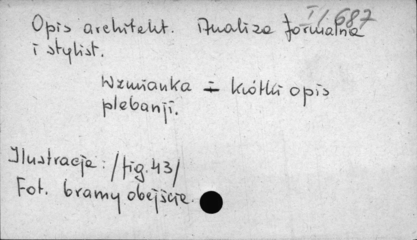 I/1.687
Opis architekt. Analiza formalna
i stylist.
Wzmianka i krótki opis
plebanji.
Ilustracje: /fig.43/
Fot. bramy obejście.